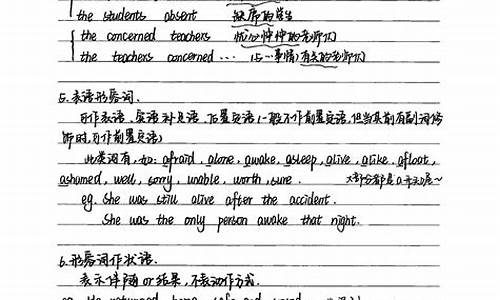 the students absent 缺席的学生
the concerned teachers 忧心忡忡的老师们
the teachers concerned ... (与…事情)有关的老师们
5. 表语形容词.
可作表语、宾语补足语、后置定语(一般不作前置定语,但当其前有副词修
饰时,可作前置定语)
此类词有,如: afraid, alone, awake, asleep, alive, alike, afloat,
ashamed, well, sorry, unable, worth, sure. 大部分都是a开头哦~
eg. She was still alive after the accident.
She was the only person awake that night.
6. 形容词作状语.
表示伴随 or 结果,不表动作方式.
eg. He returned home, safe and